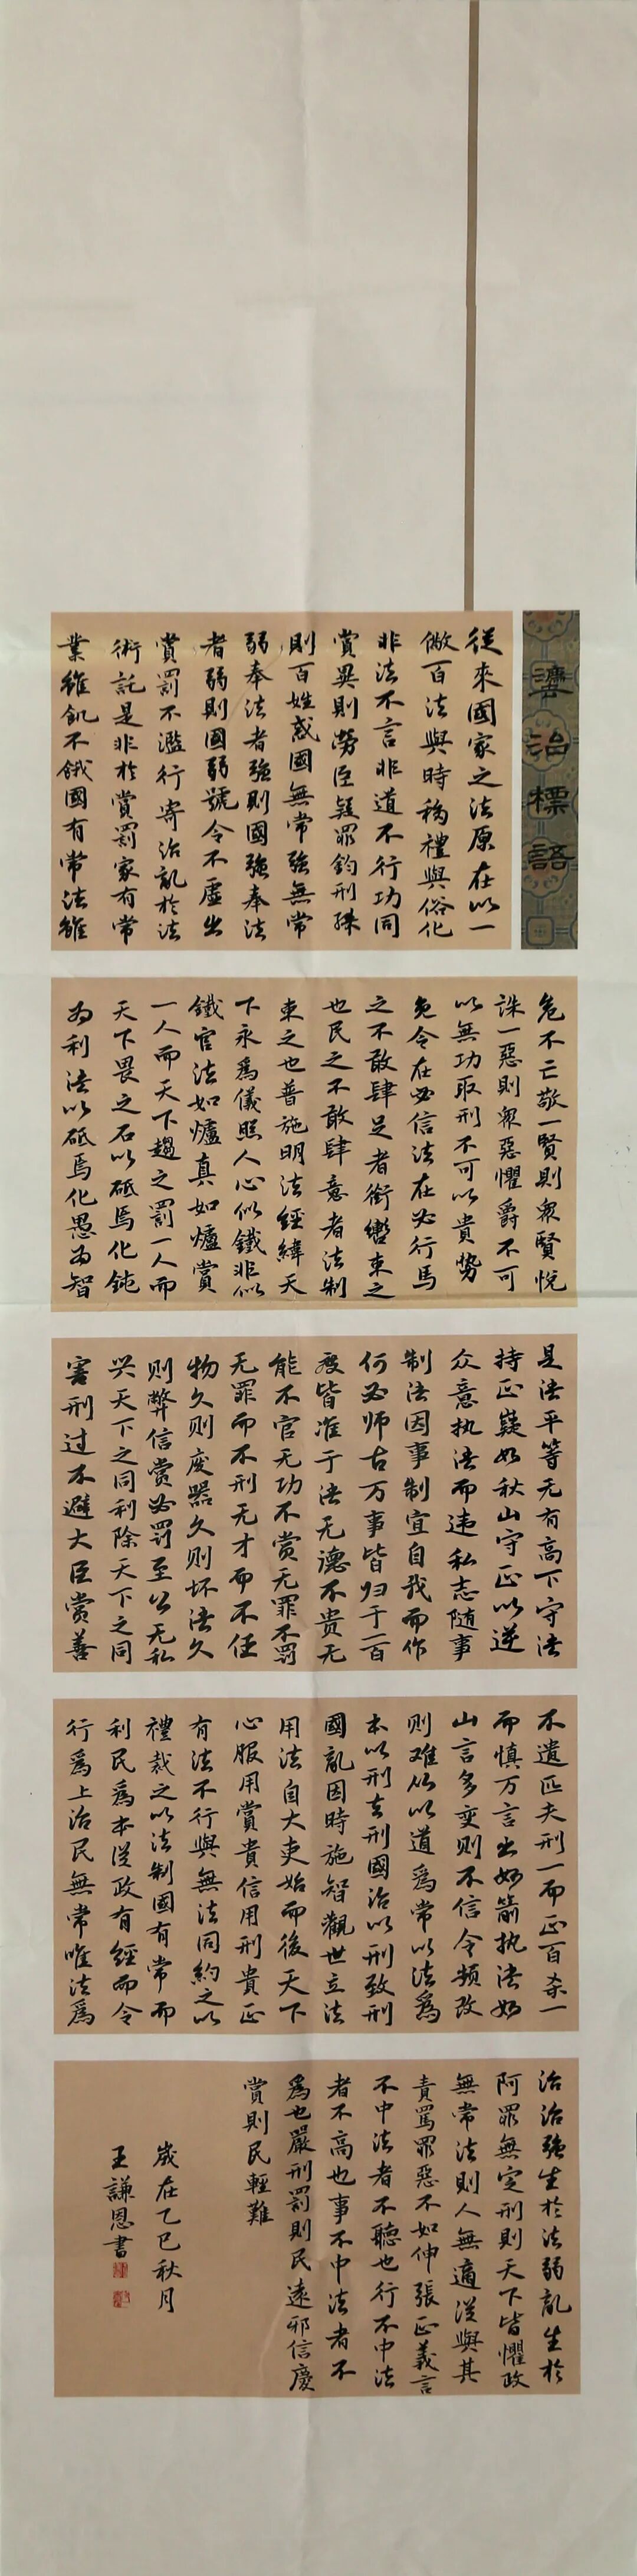 濃治標語
從來國家之法原在以一
儆百法與時移禮與俗化
非法不言非道不行功同
賞異則勞臣疑罪鈞刑殊
則百姓惑國無常強無常
弱奉法者強則國強奉法
者弱則國弱號令不虛出
賞罰不濫行寄治亂於法
術託是非於賞罰家有常
業雖飢不餓國有常法雖
危不亡敬一賢則衆賢悅
誅一惡則衆惡懼爵不可
以無功取刑不可以貴勢
免令在必信法在必行馬
之不敢肆足者銜轡束之
也民之不敢肆意者法制
束之也普施明法經緯天
下永為儀照人心似鐵非似
鐵官法如爐真如爐賞
一人而天下趨之罰一人而
天下畏之石以砥焉化鈍
为利法以砥焉化愚为智
是法平等无有高下守法
持正嶷如秋山守正以逆
众意执法而违私志随事
制法因事制宜自我而作
何必师古万事皆归于一百
度皆准于法无德不贵无
能不官无功不赏无罪不罚
无罪而不刑无才而不任
物久则废器久则坏法久
则弊信赏必罚至公无私
兴天下之同利除天下之同
害刑过不避大臣赏善
不遺匹夫刑一而正百杀一
而慎万言出如箭执法如
山言多变则不信令频改
则难从以道為常以法為
本以刑去刑國治以刑致刑
國亂因時施智觀世立法
用法自大吏始而後天下
心服用賞貴信用刑貴正
有法不行與無法同約之以
禮裁之以法制國有常而
利民為本從政有經而令
行為上治民無常唯法為
治治強生於法弱亂生於
阿罪無定刑則天下皆懼政
無常法則人無適從與其
責罵罪惡不如伸張正義言
不中法者不聽也行不中法
者不高也事不中法者不
為也嚴刑罰則民遠邪信慶
賞則民輕難
歲在乙巳秋月
王謙恩書